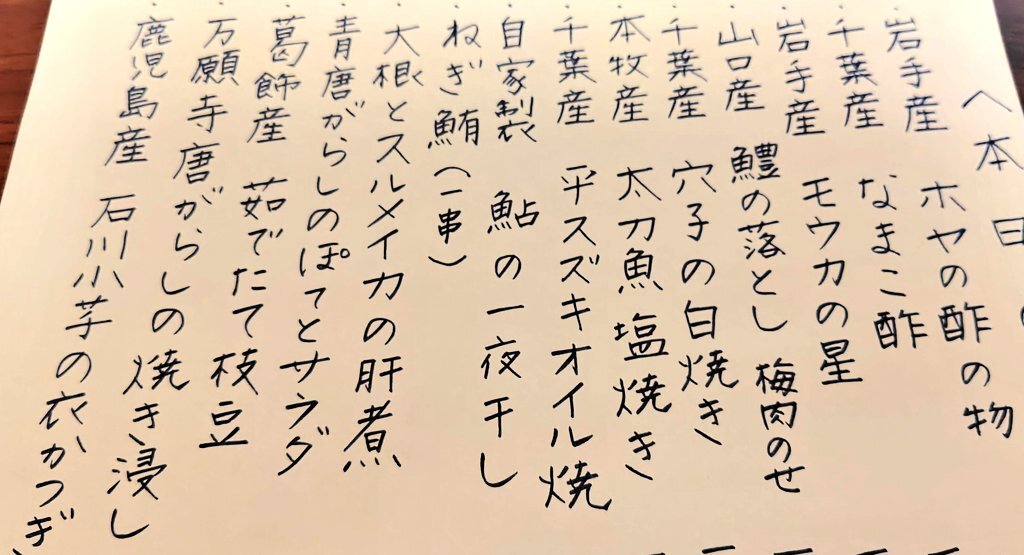 へ本日の
・岩手産 ホヤの酢の物
・千葉産 なまこ酢
・岩手産 モウカの星
・山口産 鱧の落とし 梅肉のせ
・千葉産 穴子の白焼き
・本牧産 太刀魚塩焼き
・千葉産 平スズキオイル焼
・自家製 鮎の一夜干し
・ねぎ鮪(一串)
・大根とスルメイカの肝煮
・青唐がらしのぽてとサラダ
・葛飾産 茹でたて枝豆
・万願寺唐がらしの焼き浸し
・鹿児島産 石川小芋の衣かつぎ